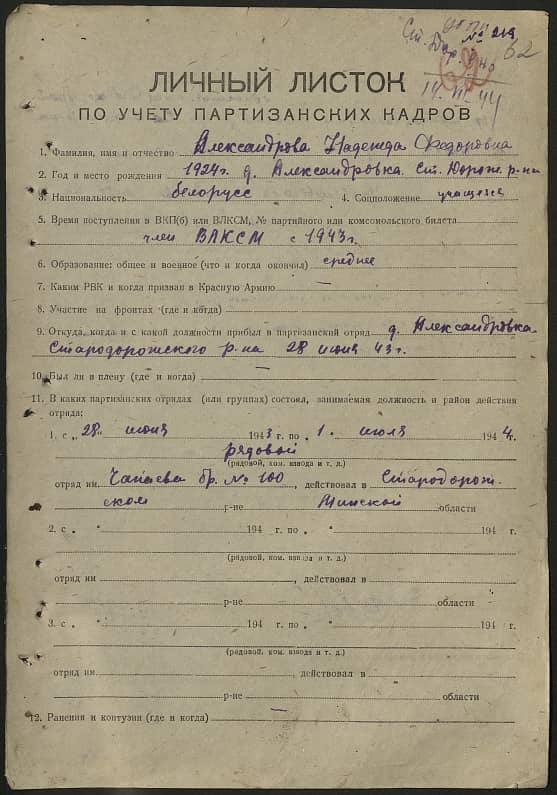 № 219
62
Ст. Дор.
ЛИЧНЫЙ ЛИСТОК
ПО УЧЕТУ ПАРТИЗАНСКИХ КАДРОВ
1. Фамилия, имя и отчество Александрова Надежда Федоровна
2. Год и место рождения 1924 г. д. Александровка Ст. Дорож. р-на
3. Национальность белорусс 4. Соцположение учащаяся
5. Время поступления в ВКП(б) или ВЛКСМ, № партийного или комсомольского билета
член ВЛКСМ с 1943 г.
6. Образование: общее и военное (что и когда окончил) среднее
7. Каким РВК и когда призван в Красную Армию —
8. Участие на фронтах (где и когда) —
9. Откуда, когда и с какой должности прибыл в партизанский отряд д. Александровка
Стародорожского р-на 28 июня 43 г.
10. Был ли в плену (где и когда) —
11. В каких партизанских отрядах (или группах) состоял, занимаемая должность и район действия
отряда:
1. с „28" июня 1943 г. по „1. июля 1944 г.
рядовой
(рядовой, ком. взвода и т. д.)
отряд им. Чапаева бр. № 100, действовал в Стародорож-
ском р-не Минской области
2. с „ " 194 г. по „ " 194 г.
(рядовой, ком. взвода и т. д.)
отряд им. , действовал в
р-не области
3. с „ " 194 г. по „ " 194 г.
(рядовой, ком. взвода и т. д.)
отряд им. , действовал в
р-не области
12. Ранения и контузии (где и когда) —